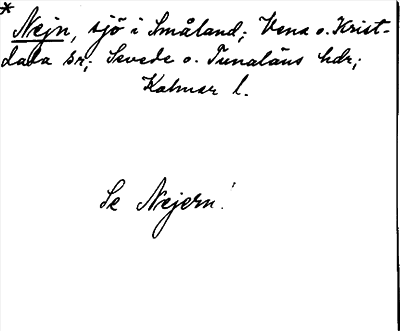 * Nejn, sjö i Småland; Vena o. Krist-
dala sr; Sevede o. Tunaläns hdr;
Kalmar l.
Se Nejern!